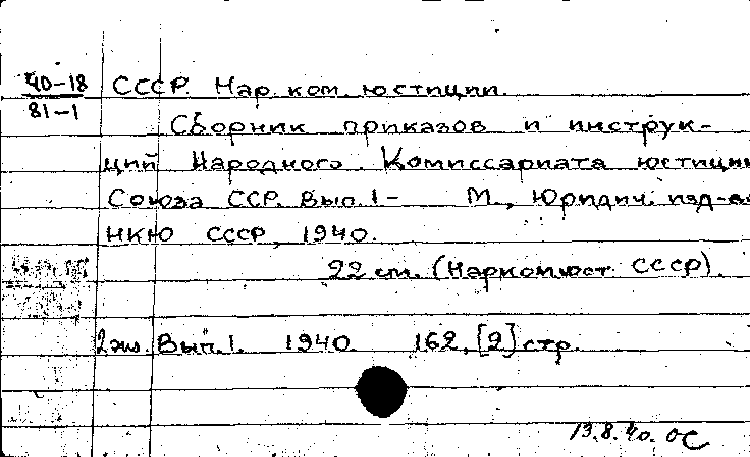 40-18 СССР. Нар. ком. юстиции.
81-1
Сборник приказов и инструк-
ций Народного Комиссариата юстиции
Союза ССР. Вып. 1- М., Юридич. изд-во
НКЮ СССР, 1940.
22 см. (Наркомюст СССР).
2 экз. Вып. 1. 1940. 162, [2] стр.
13.8.40. ОС